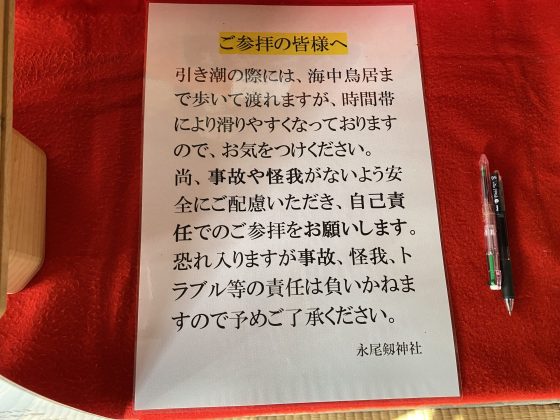 ご参拝の皆様へ
引き潮の際には、海中鳥居ま
で歩いて渡れますが、時間帯
により滑りやすくなっております
ので、お気をつけください。
尚、事故や怪我がないよう安
全にご配慮いただき、自己責
任でのご参拝をお願いします。
恐れ入りますが事故、怪我、ト
ラブル等の責任は負いかねま
すので予めご了承ください。
永尾剱神社